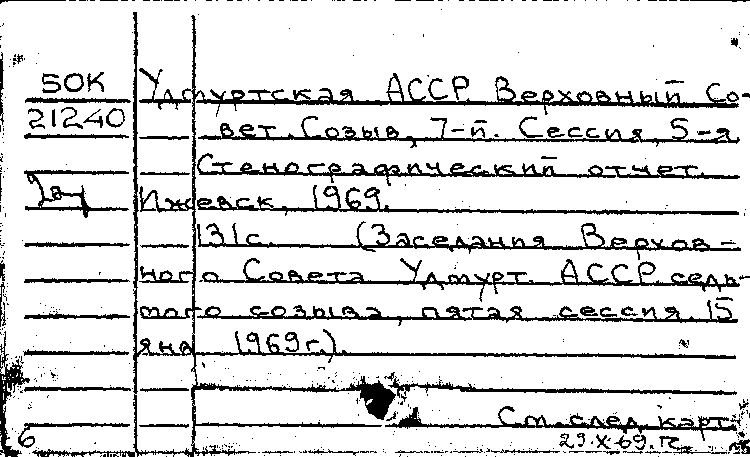 БОК
21240
Удмуртская АССР. Верховный Со-
вет. Созыв, 7-й. Сессия, 5-я.
Стенографический отчет.
Ижевск, 1969.
131с. (Заседания Верхов-
ного Совета Удмурт. АССР седь-
мого созыва, пятая сессия. 15
янв. 1969г.).
См. след. карт.
6